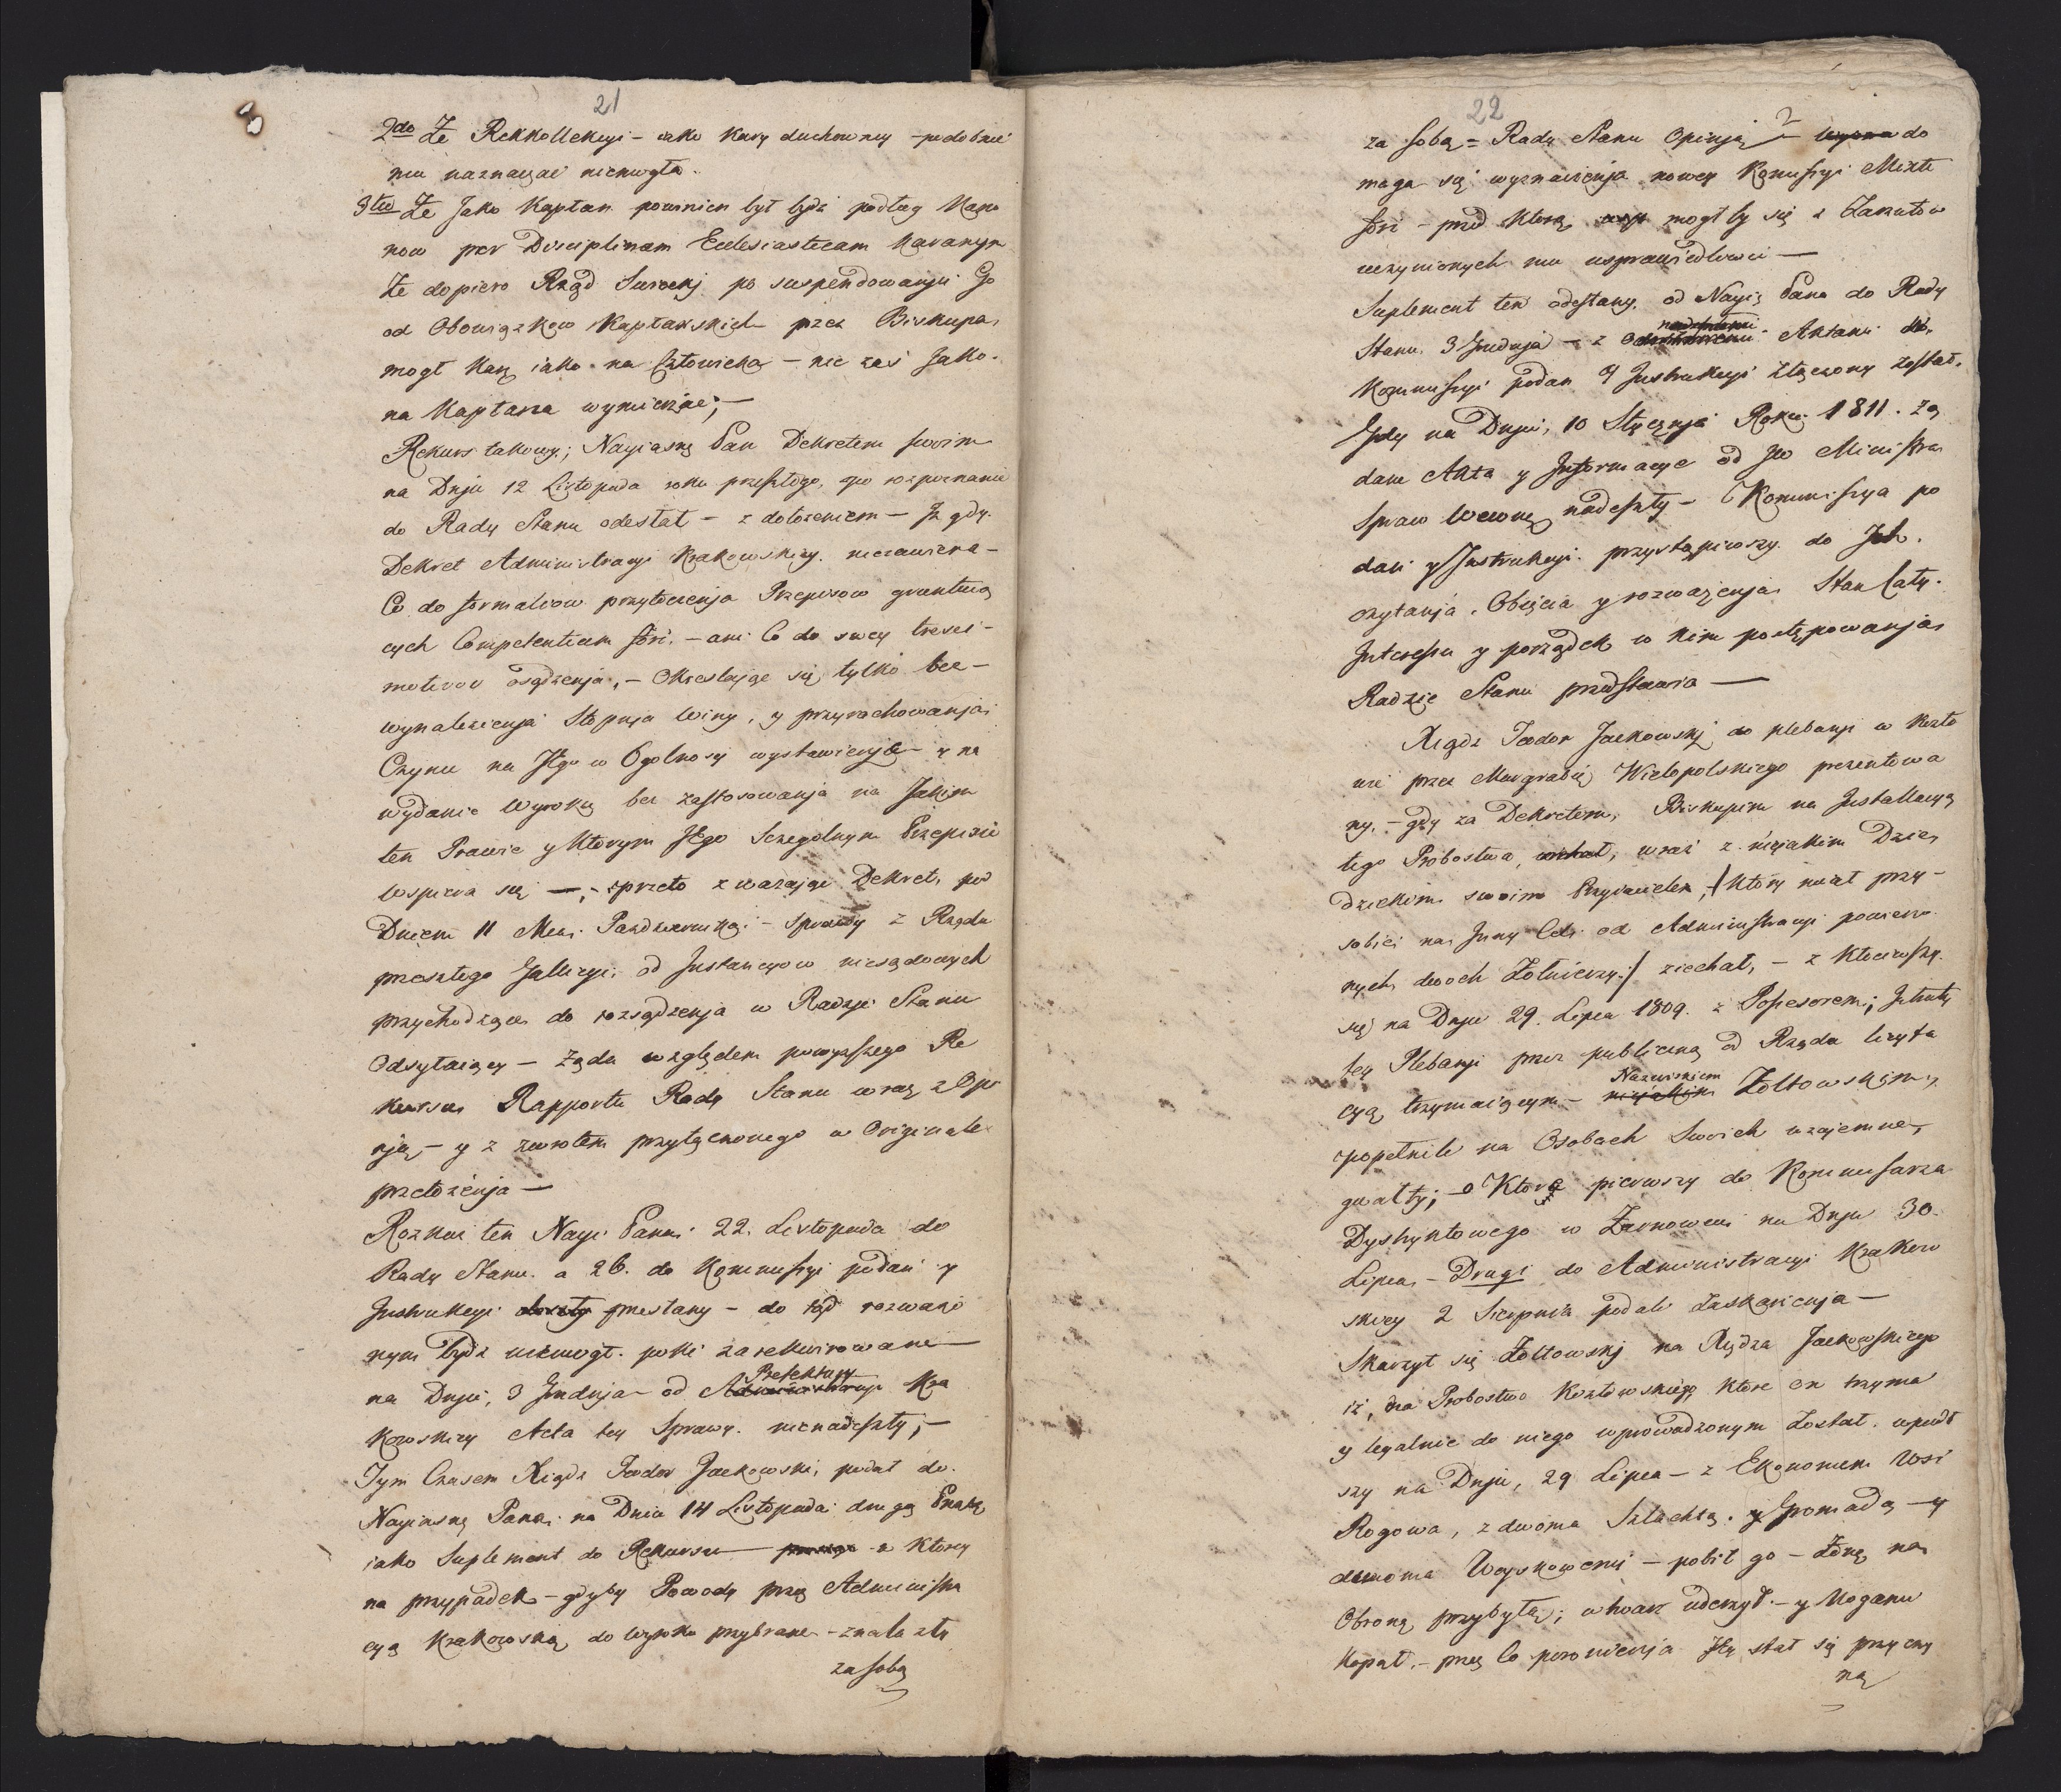 21
2do Że Rekkollekcyi – iako kary duchowney – podobnie
mu naznaczać niemogła.
3tio Że Jako Kapłan powinien był bydź podług Kano
now per Disciplinam Eclesiasticam karanym
Że dopiero Rząd Swiecki po suspendowaniu Go
od Obowiązkow Kapłańskich przez Biskupa,
mogł karę iako na Człowieka – nie zaś Jako
na Kapłana wymierzać; –
Rekurs takowy; Nayiasny Pan Dekretem swoim
na Dniu 12 Listopada roku przeszłego, po rozpoznanie
do Rady Stanu odesłał – z dołożeniem – Jż gdy
Dekret Administracyi Krakowskiey niezawiera –
Co do formaliow przytoczenja Przepisow gruntuią
cych Competentiam fori – ani Co do swey tresci –
motivow osądzenja, – Okreslaiąc się tylko bez –
wynalezienja Stopnja winy, y przyrachowanja
Czynu na Jego w Ogolnosci wystawienje – y na
wydanie Wyroku bez zastosowanja na Jakim
ten Prawie y Ktorym Jego Sczegolnym Przepisie
wspiera się –, – przeto zważaiąc Dekret, pod
Dniem 11 Mca Pazdziernika – sprawy z Rządu
przeszłego Gallicyi, od Jnstancyow niesądowych
przychodzące do rozsądzenja w Radzie Stanu
Odsyłaiący – Żąda względem powyższego Re
kursu Rapportu Rady Stanu wraz z Opi
nją – y z zwrotem przyłączonego w Originale
przełożenja –
Rozkaz ten Nayi Pana 22. Listopada do
Rady Stanu a 26. do Kommissyi podań y
Jnstrukcyi doszły przesłany – do tąd rozważo
nym bydź niemogł. poki zarekwirowane
na Dniu, 3 Grudnja – od Administracyi Prefektury Kra
kowskiey Acta tey Sprawy nienadeszły; –
Tym Czasem Xiądz Teodor Jackowski, podał do
Nayiasnie Pana na Dniu 14 Listopada drugą Prozbę
iako Suplement do Rekursu – w ktorey
na przypadek – gdyby Powody przez Administra
cyą Krakowską do wyroku przybrane – znalazły
za sobą
22
za sobą = Rady Stanu Opinją – do
maga się wyznaczenja nowey Komissyi Mixti
fori – przed ktorą mogł by się z Zarzutow
uczynionych mu usprawiedliwić –
Suplement ten odesłany od Nayią Pana do Rady
Stanu 3 Grudnja – z nadesłanemi Aktami do
Kommissyi podań y Jnstrukcyi złączony został.
Gdy na Dniu, 10 Stycznja Roku 1811. żą
dane Akta y Jnformacye od JW Ministra
Spraw Wewnę nadeszły – Kommissya po
dań y Jnstrukcyi przystąpiwszy do Jch
czytanja, Obięcia y rozważenja Stan Cały
Jnteressu y porządek w nim postępowanja
Radzie Stanu przedstawia –
Xiądz Teodor Jackowski do plebanji w Kozło
wie przez Margrabię Wielopolskiego prezentowa
ny, – gdy za Dekretem, Biskupim na Jnstallacyą
tego Probostwa, wraz z nieiakim Dzie,
dzickim swoim Przyiacielem, /Ktory miał przy –
sobie na Jnny Cel od Administracyi powierzo
nych dwoch Żołnierzy:/ ziechał, – z Kłociwszy
się na Dniu 29. Lipca 1809. z Possesorem; Jntraty
tey Plebanji przez publiczną od Rządu licyta
cyą trzymaiącym – Nazwiskiem Żołtowskim,
popełnili na Osobach Swoich wzajemne,
gwałty; – o Które pierwszy do Kommissarza
Dystryktowego w Żarnowcu na Dnju 30.
Lipca, – Drugi do Administracyi Krakow
skiey 2 Sierpnia podali Zaskarżenja –
Skarżył się Żołtowski na Xiędza Jackowskiego
iż, na Probostwo Kozłowskie, ktore on trzyma
y legalnie do niego wprowadzonym został. wpadł
szy na Dnju, 29 Lipca – z Ekonomem Wsi
Rogowa, z dwoma Szlachtą y Gromadą – y
dwoma Woyskowemi – pobił go – Żonę na
Obronę przybyłą; w twarz uderzył – y Nogami
kopał. – przez Co poronienja Jey stał się przyczy
ną